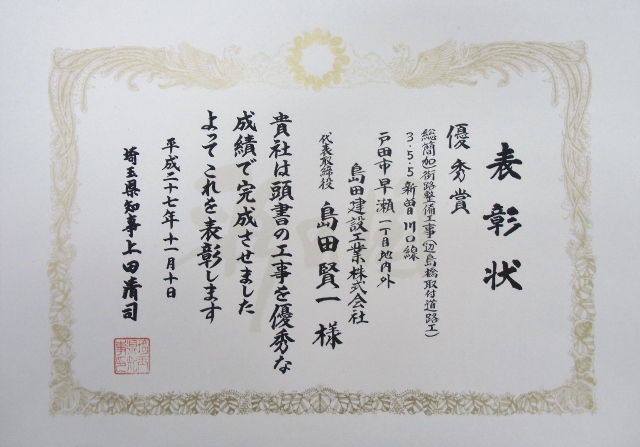 表彰状
優秀賞
総簡加)街路整備工事(辺島橋取付道路工)
3・5・5新曽川口線
戸田市早瀬一丁目地内外
島田建設工業株式会社
代表取締役 島田賢一 様
貴社は頭書の工事を優秀な
成績で完成させました
よってこれを表彰します
平成二十七年十一月十日
埼玉県知事上田清司